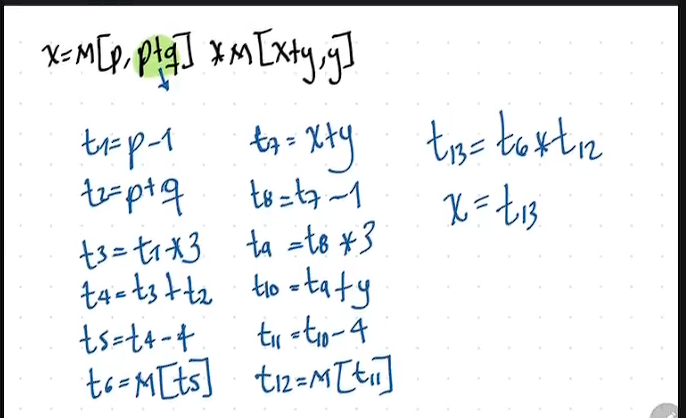 x=M[p, p+q] * M[x+y, y]
t1=p-1
t2=p+q
t3=t1*3
t4=t3+t2
t5=t4-4
t6=M[t5]
t7=x+y
t8=t7-1
t9=t8*3
t10=t9+y
t11=t10-4
t12=M[t11]
t13=t6*t12
x=t13